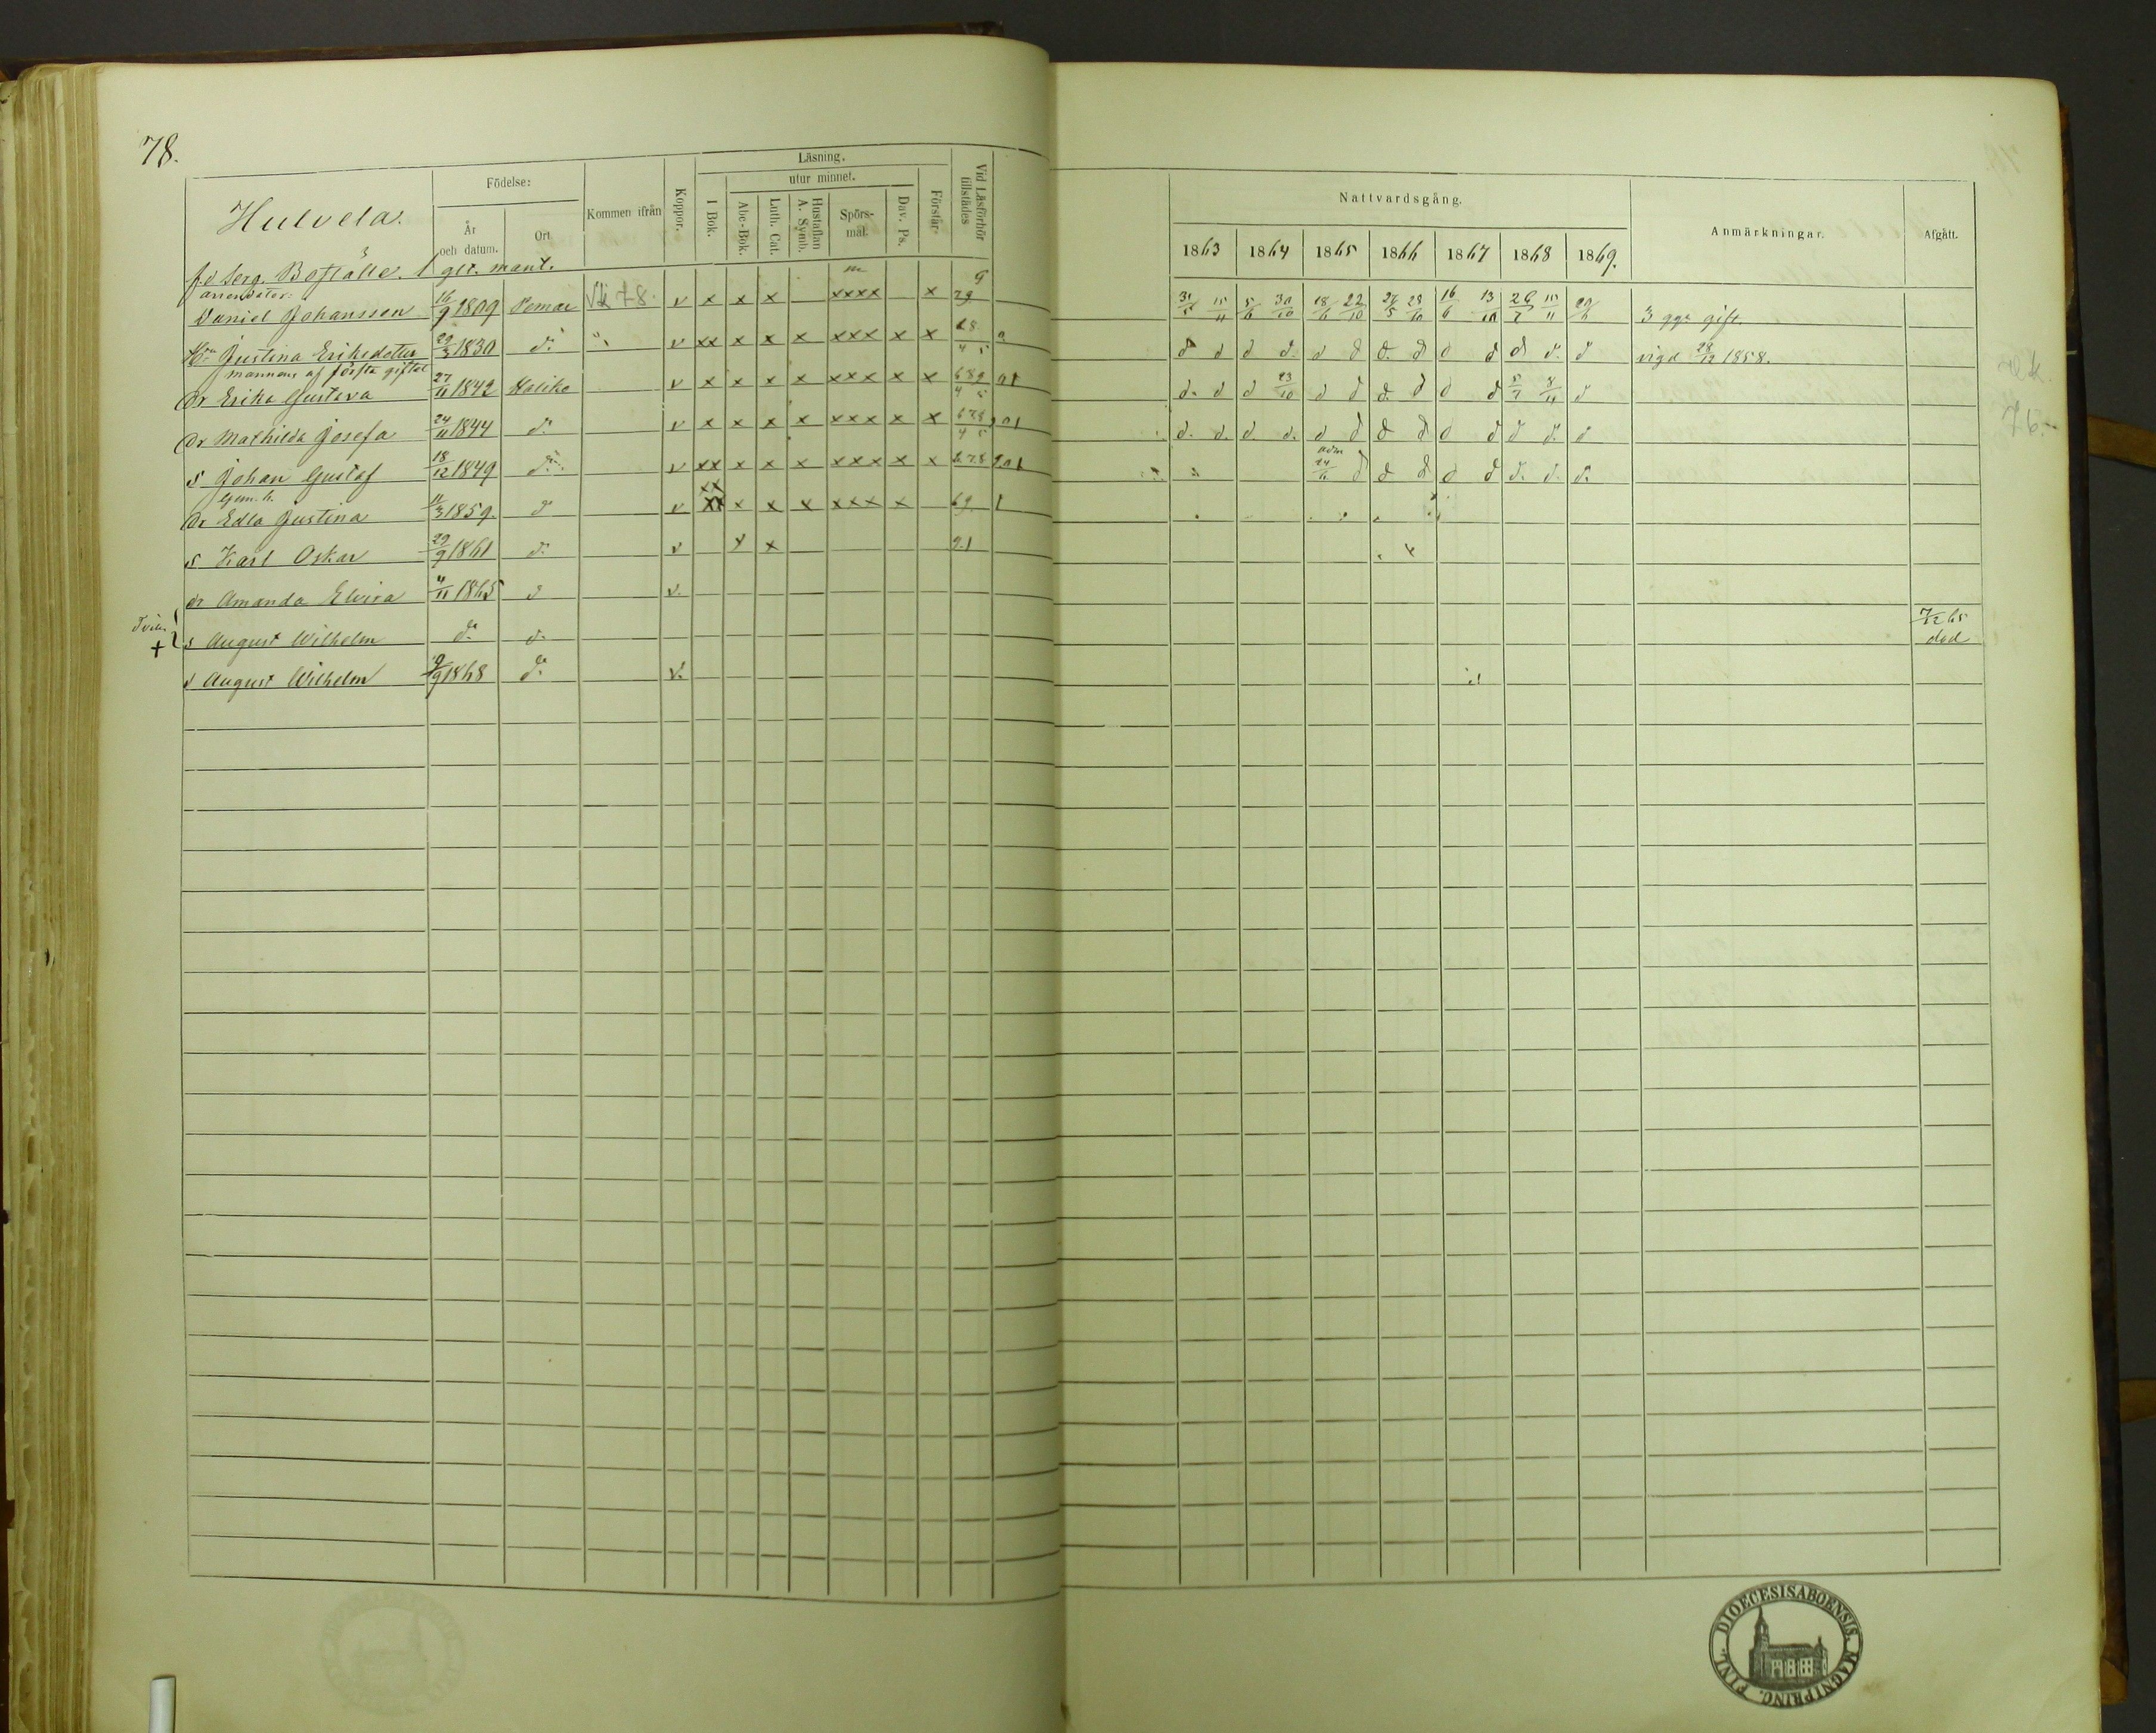 78.
Hulvela.
Födelse:
År och datum.
Ort
Kommen ifrån
Koppor.
Läsning.
utur minnet.
I Bok.
Abc-Bok.
Luth. Cat.
Hustaflan A. Symb.
Spörsmål.
Dav. Ps.
Förstår
Vid Läsförhör tillstädes
Nattvardsgång.
1863 1864 1865 1866 1867 1868 1869.
Anmärkningar.
Afgått.
f.d. Serg. Boställe. 1 glt. mant.
arrendator:
Daniel Johansson 16/9 1809 Pemar v x x x xxxx x 29 31/5 15/11 5/6 30/10 18/6 22/10 27/5 28/10 16/6 13/10 26/7 15/11 20/6 3 ggr gift.
Hu Justina Eriksdotter 29/3 1830 do v xx x x x xxx x x 68 4 5 d d d d. d d d. d d d d d. d vigd 28/12 1858.
mannens af första giftet
dr Erika Gustava 27/11 1842 Haliko v x x x x xxx x x 689 4 5 d. d d 23/10 d d d. d d d 5/7 8/11 d
dr Mathilda Josefa 24/11 1844 do v x x x x xxx x x 678 4 5 d. d. d d. d d d d d d d d. d
s Johan Gustaf 18/12 1849 do v xx x x x xxx x x 678 adm 24/6 d d d d d d. d. d.
gem. h.
dr Edla Justina 11/3 1859. d v xx xx x x x xxx x 69. 1
s Karl Oskar 29/9 1861 d. v x x 9.1
dr Amanda Elvira 4/11 1865 d v.
Tvill.
+ s August Wilhelm do d. 7/12 65 död
s August Wilhelm 9/9 1868 do v.
76.
FINL. DIOECESIS ABOENSIS. MAGNI PRINC.